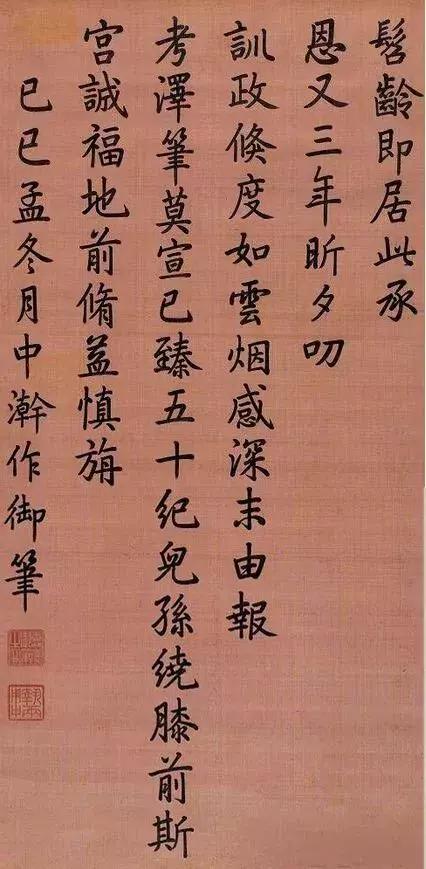 髫齡即居此承
恩又三年昕夕叨
訓政倏度如雲烟感深末由報
考澤筆莫宣已臻五十紀兒孫繞膝前斯
宮誠福地前脩益慎旃
己巳孟冬月中澣作御筆